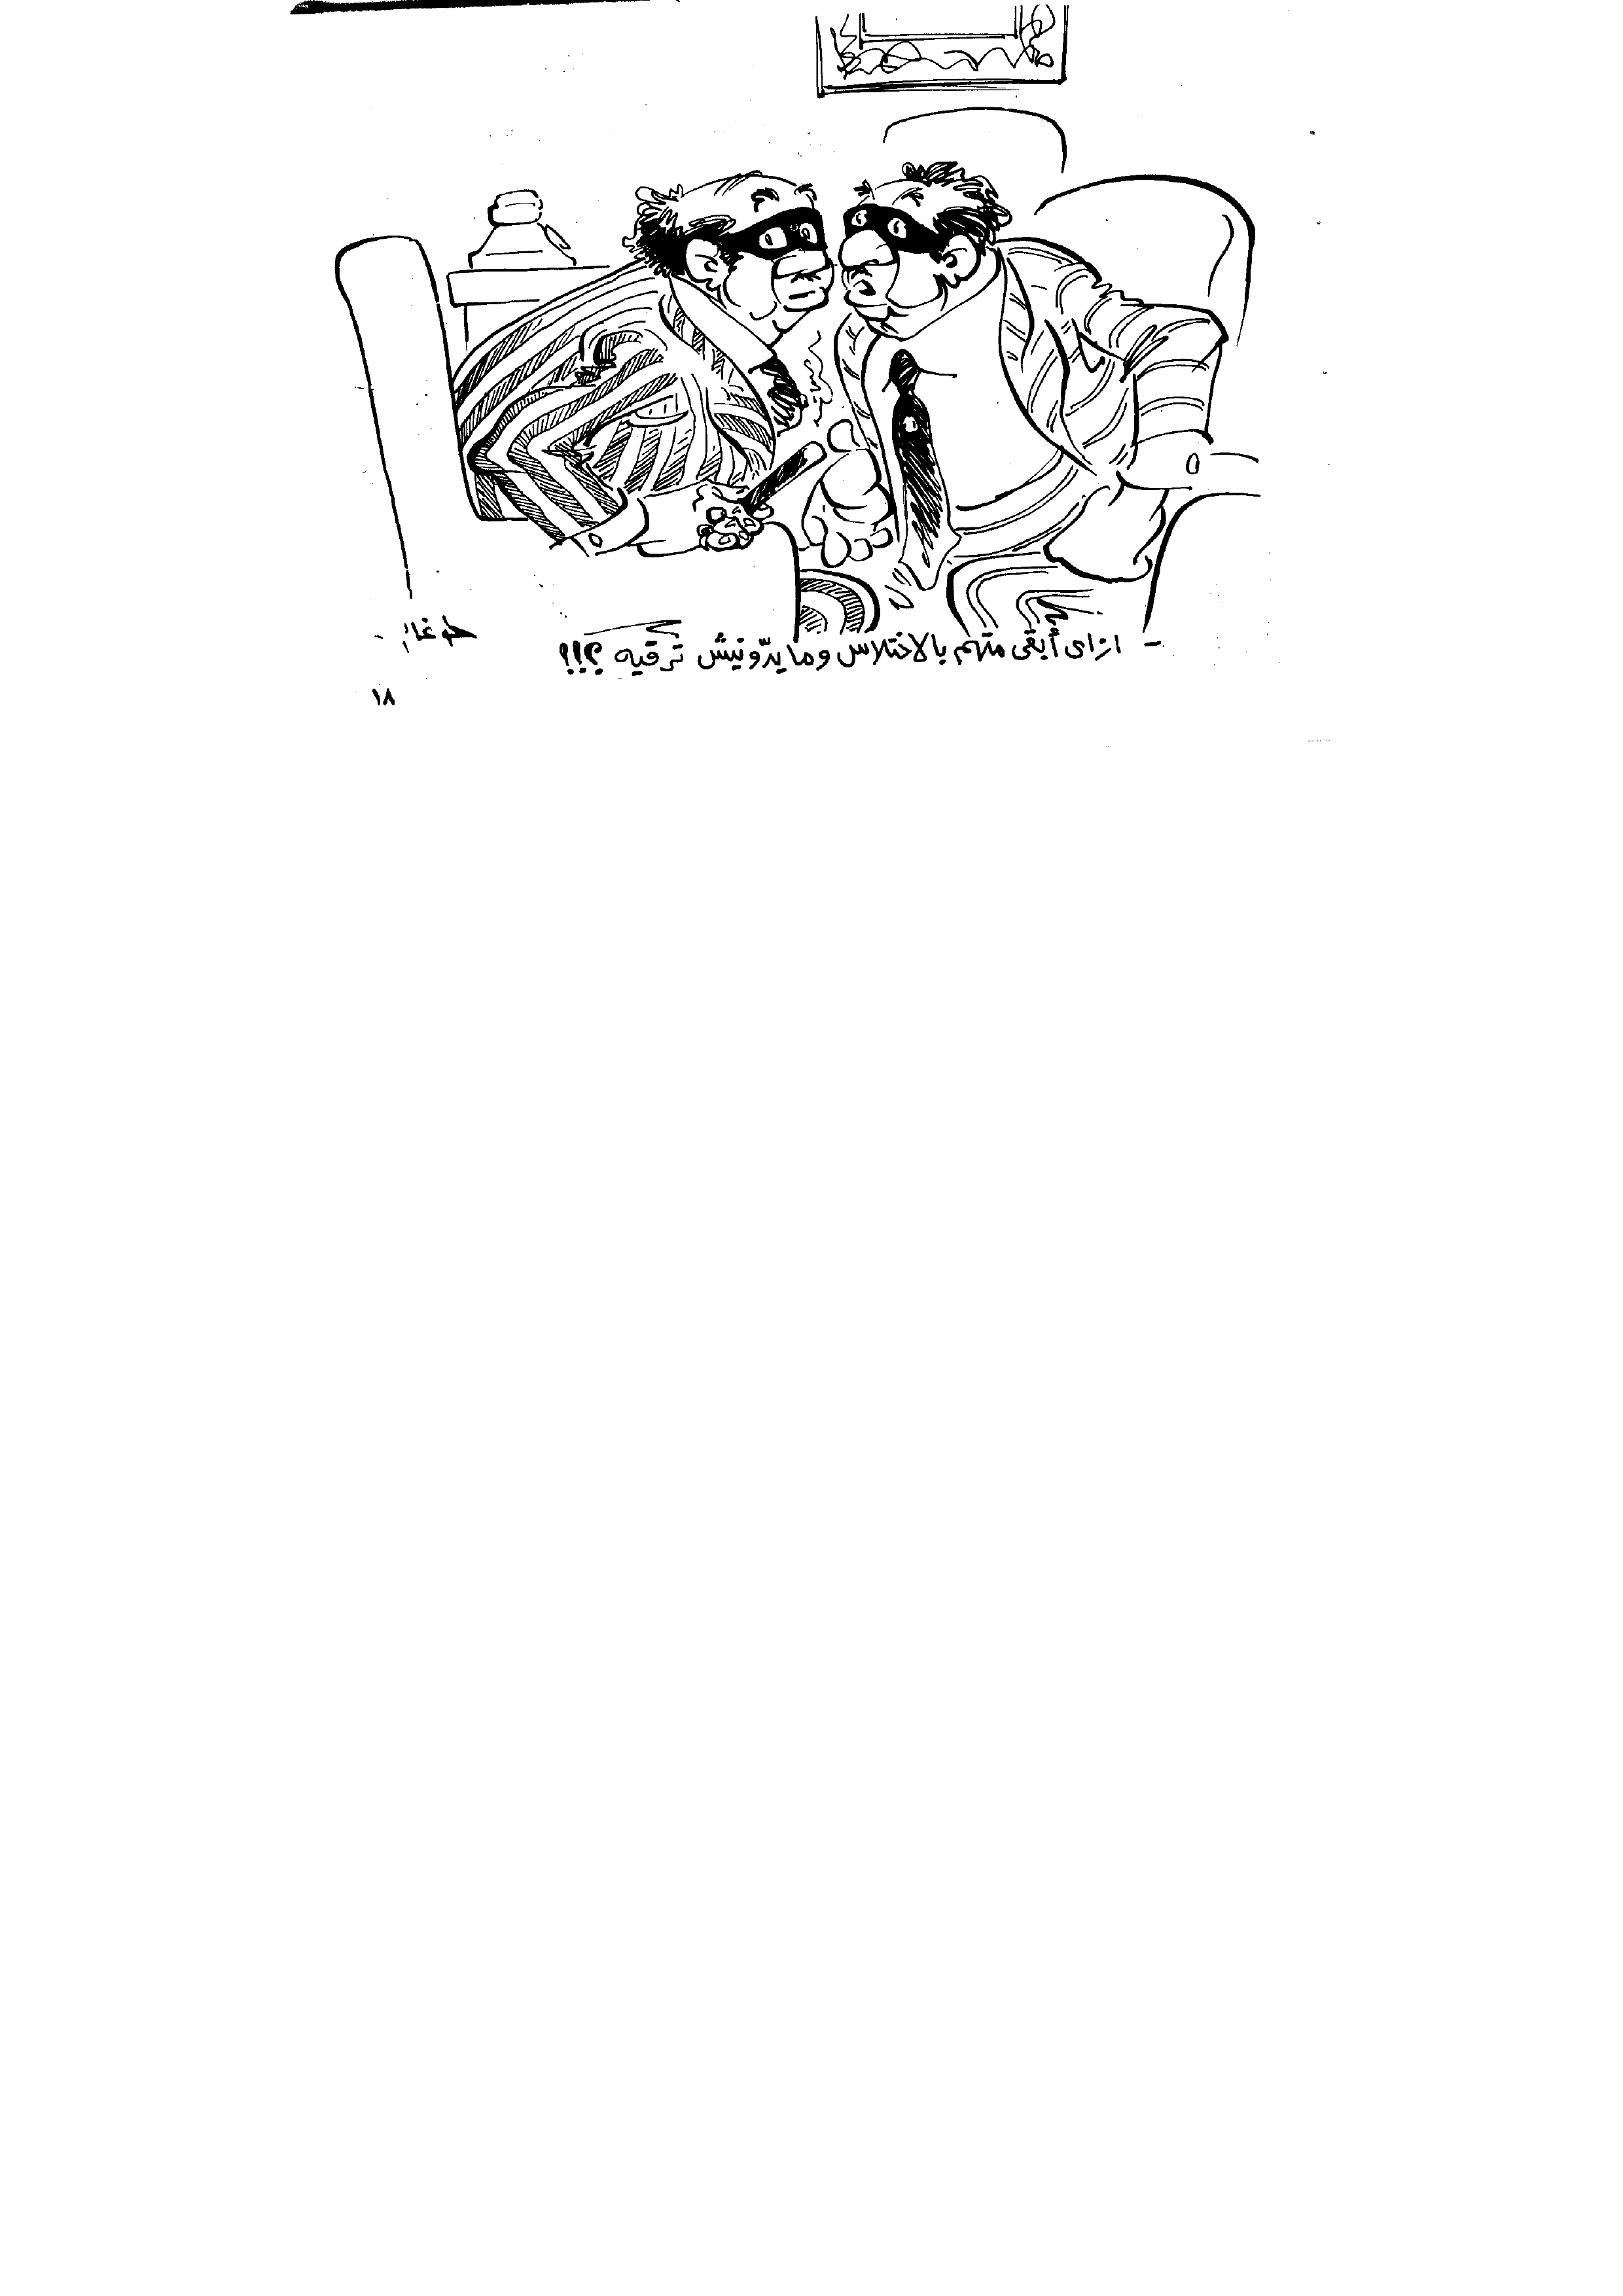 - ازاى أبقى متهم بالاختلاس وما يدّونيش ترقيه ؟!!
١٨